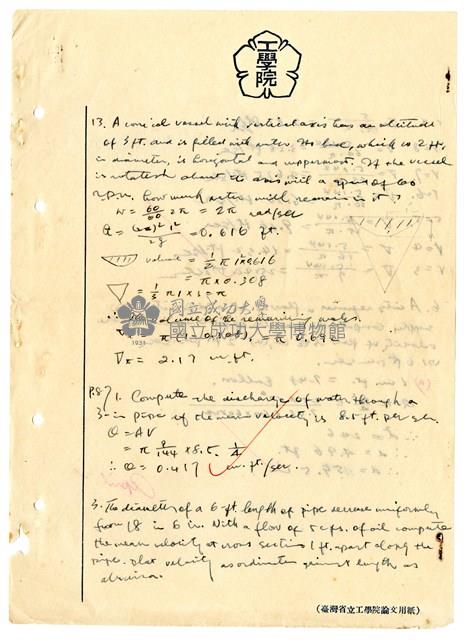 工學院
13. A conical vessel with vertical axis has an altitude
of 3 ft. and is filled with water. Its base, which is 2 ft.
in diameter, is horizontal and uppermost. If the vessel
is rotated about its axis with a speed of 60
r.p.m. how much water will remain in it?
w = 60/60 2π = 2π rad/sec
= 0.616 ft.
volume = 1/2 π 1 x 0.616
= π x 0.308
= 1/3 π 1 x 3 = π
國立成功大學
國立成功大學博物館
1931
∴ volume of the remaining water
= 2.17 cu. ft.
P.87 1. Compute the discharge of water through a
3-in pipe if the mean velocity is 8.5 ft. per sec.
Q = AV
= π 9/144 x 8.5 . 1/4
∴ Q = 0.417 cu. ft/sec.
3. The diameter of a 6-ft. length of pipe decrease uniformly
from 18 in to 6 in. With a flow of 5 cfs. of oil compute
the mean velocity at cross sections 1 ft. apart along the
pipe. Plot velocity as ordinates against length as
abscissa.
(臺灣省立工學院論文用紙)